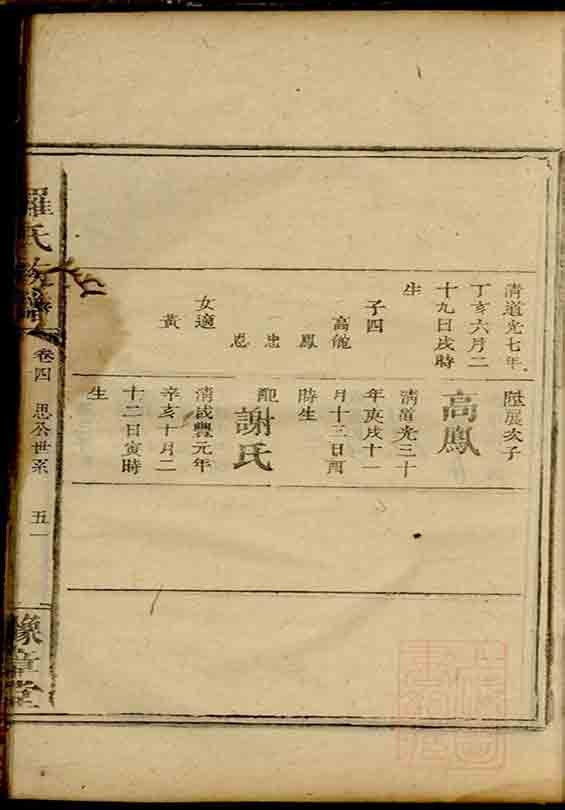 清道光七年
丁亥六月二
十九日戌時
生
子四
高能
鳳
忠
恩
女適
黃
陞展次子
高鳳
清道光三十
年庚戌十一
月十三日酉
時生
配
謝氏
清咸豐元年
辛亥十月二
十二日寅時
生
羅氏族譜
卷四
思公世系
五一
豫章堂